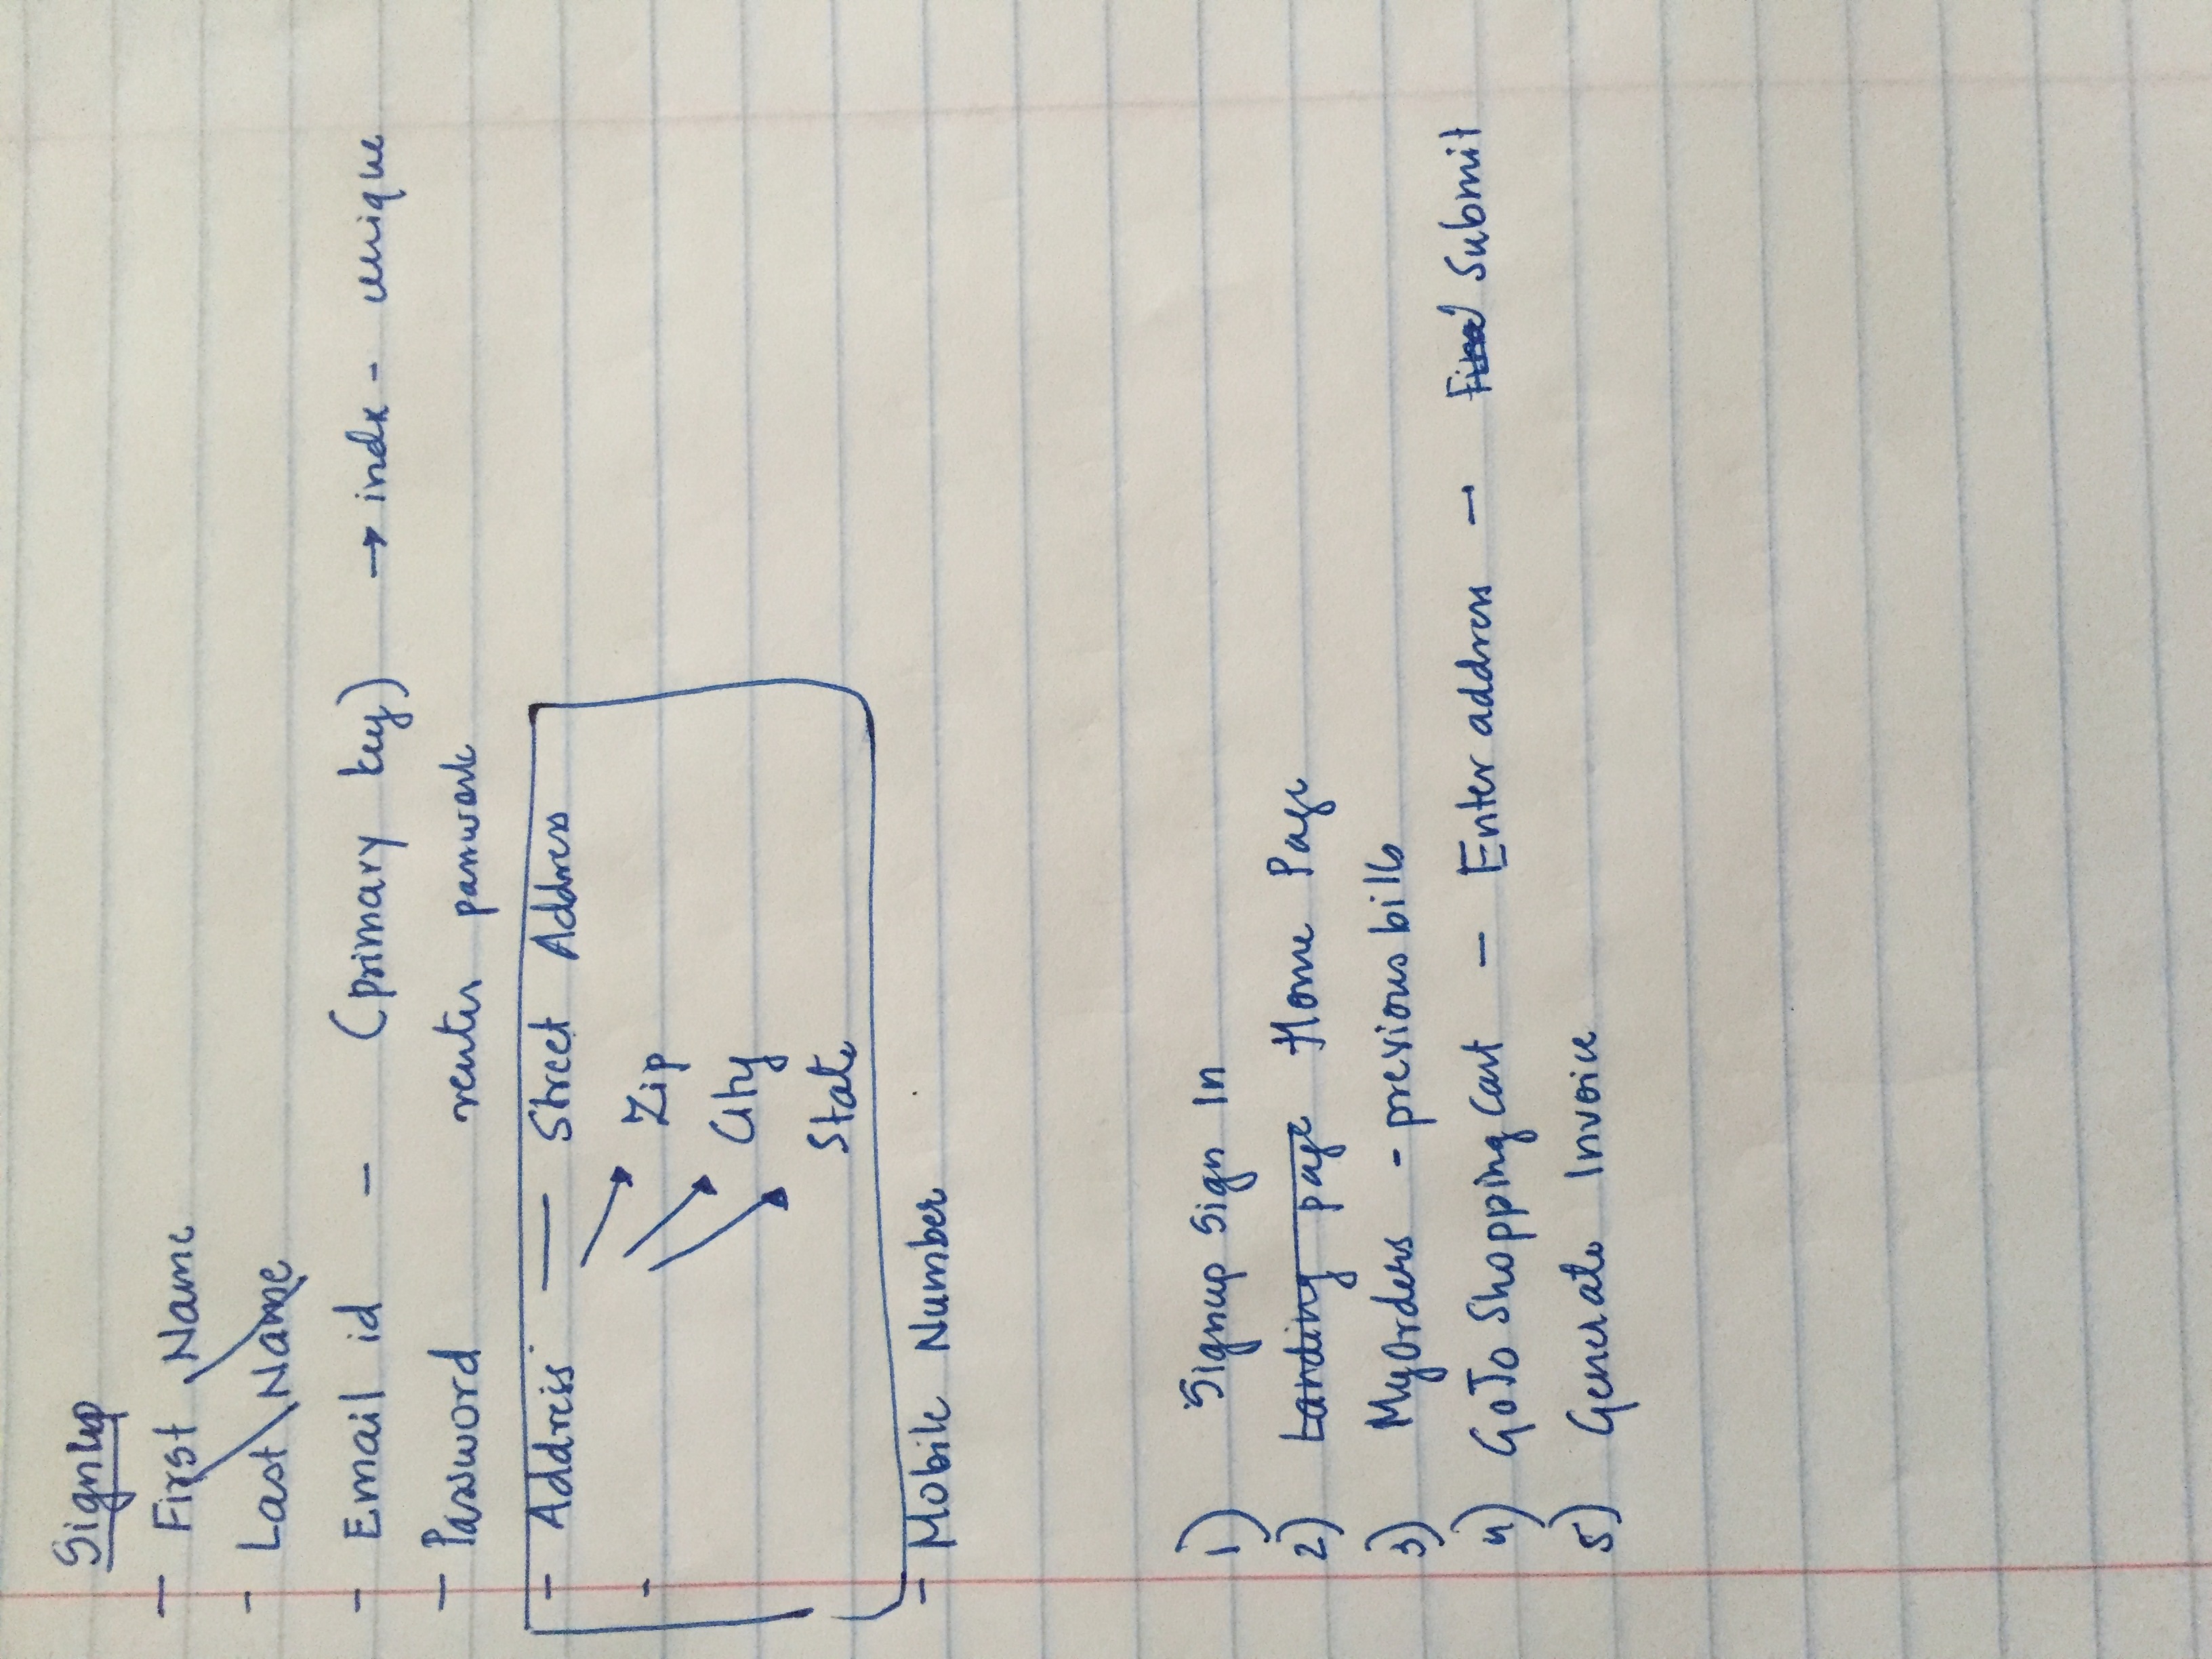 Signup
- First Name
- Last Name
- Email id - (primary key) → indx - unique
- Password renter password
- Address — Street Address
- Zip
City
State
- Mobile Number
1) Signup Sign In
2) Landing page Home Page
3) MyOrders - previous bills
4) GoTo Shopping Cart - Enter address → Submit
5) Generate Invoice